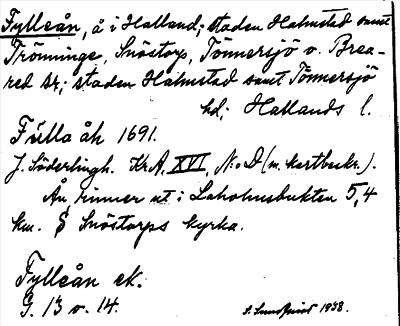 Fylleån, å i Halland; staden Halmstad samt
Trönninge, Snöstorp, Tönnersjö o. Brea-
red sn; staden Halmstad samt Tönnersjö
hd; Hallands l.
Fulla åh 1691.
J. Söderlingh. KrA, XVI, N:o D (m. kartbeskr.).
Ån rinner ut i Laholmsbukten 5,4
km. S Snöstorps kyrka.
Fylleån ek.
G. 13 o. 14.
S. Lundquist 1938.